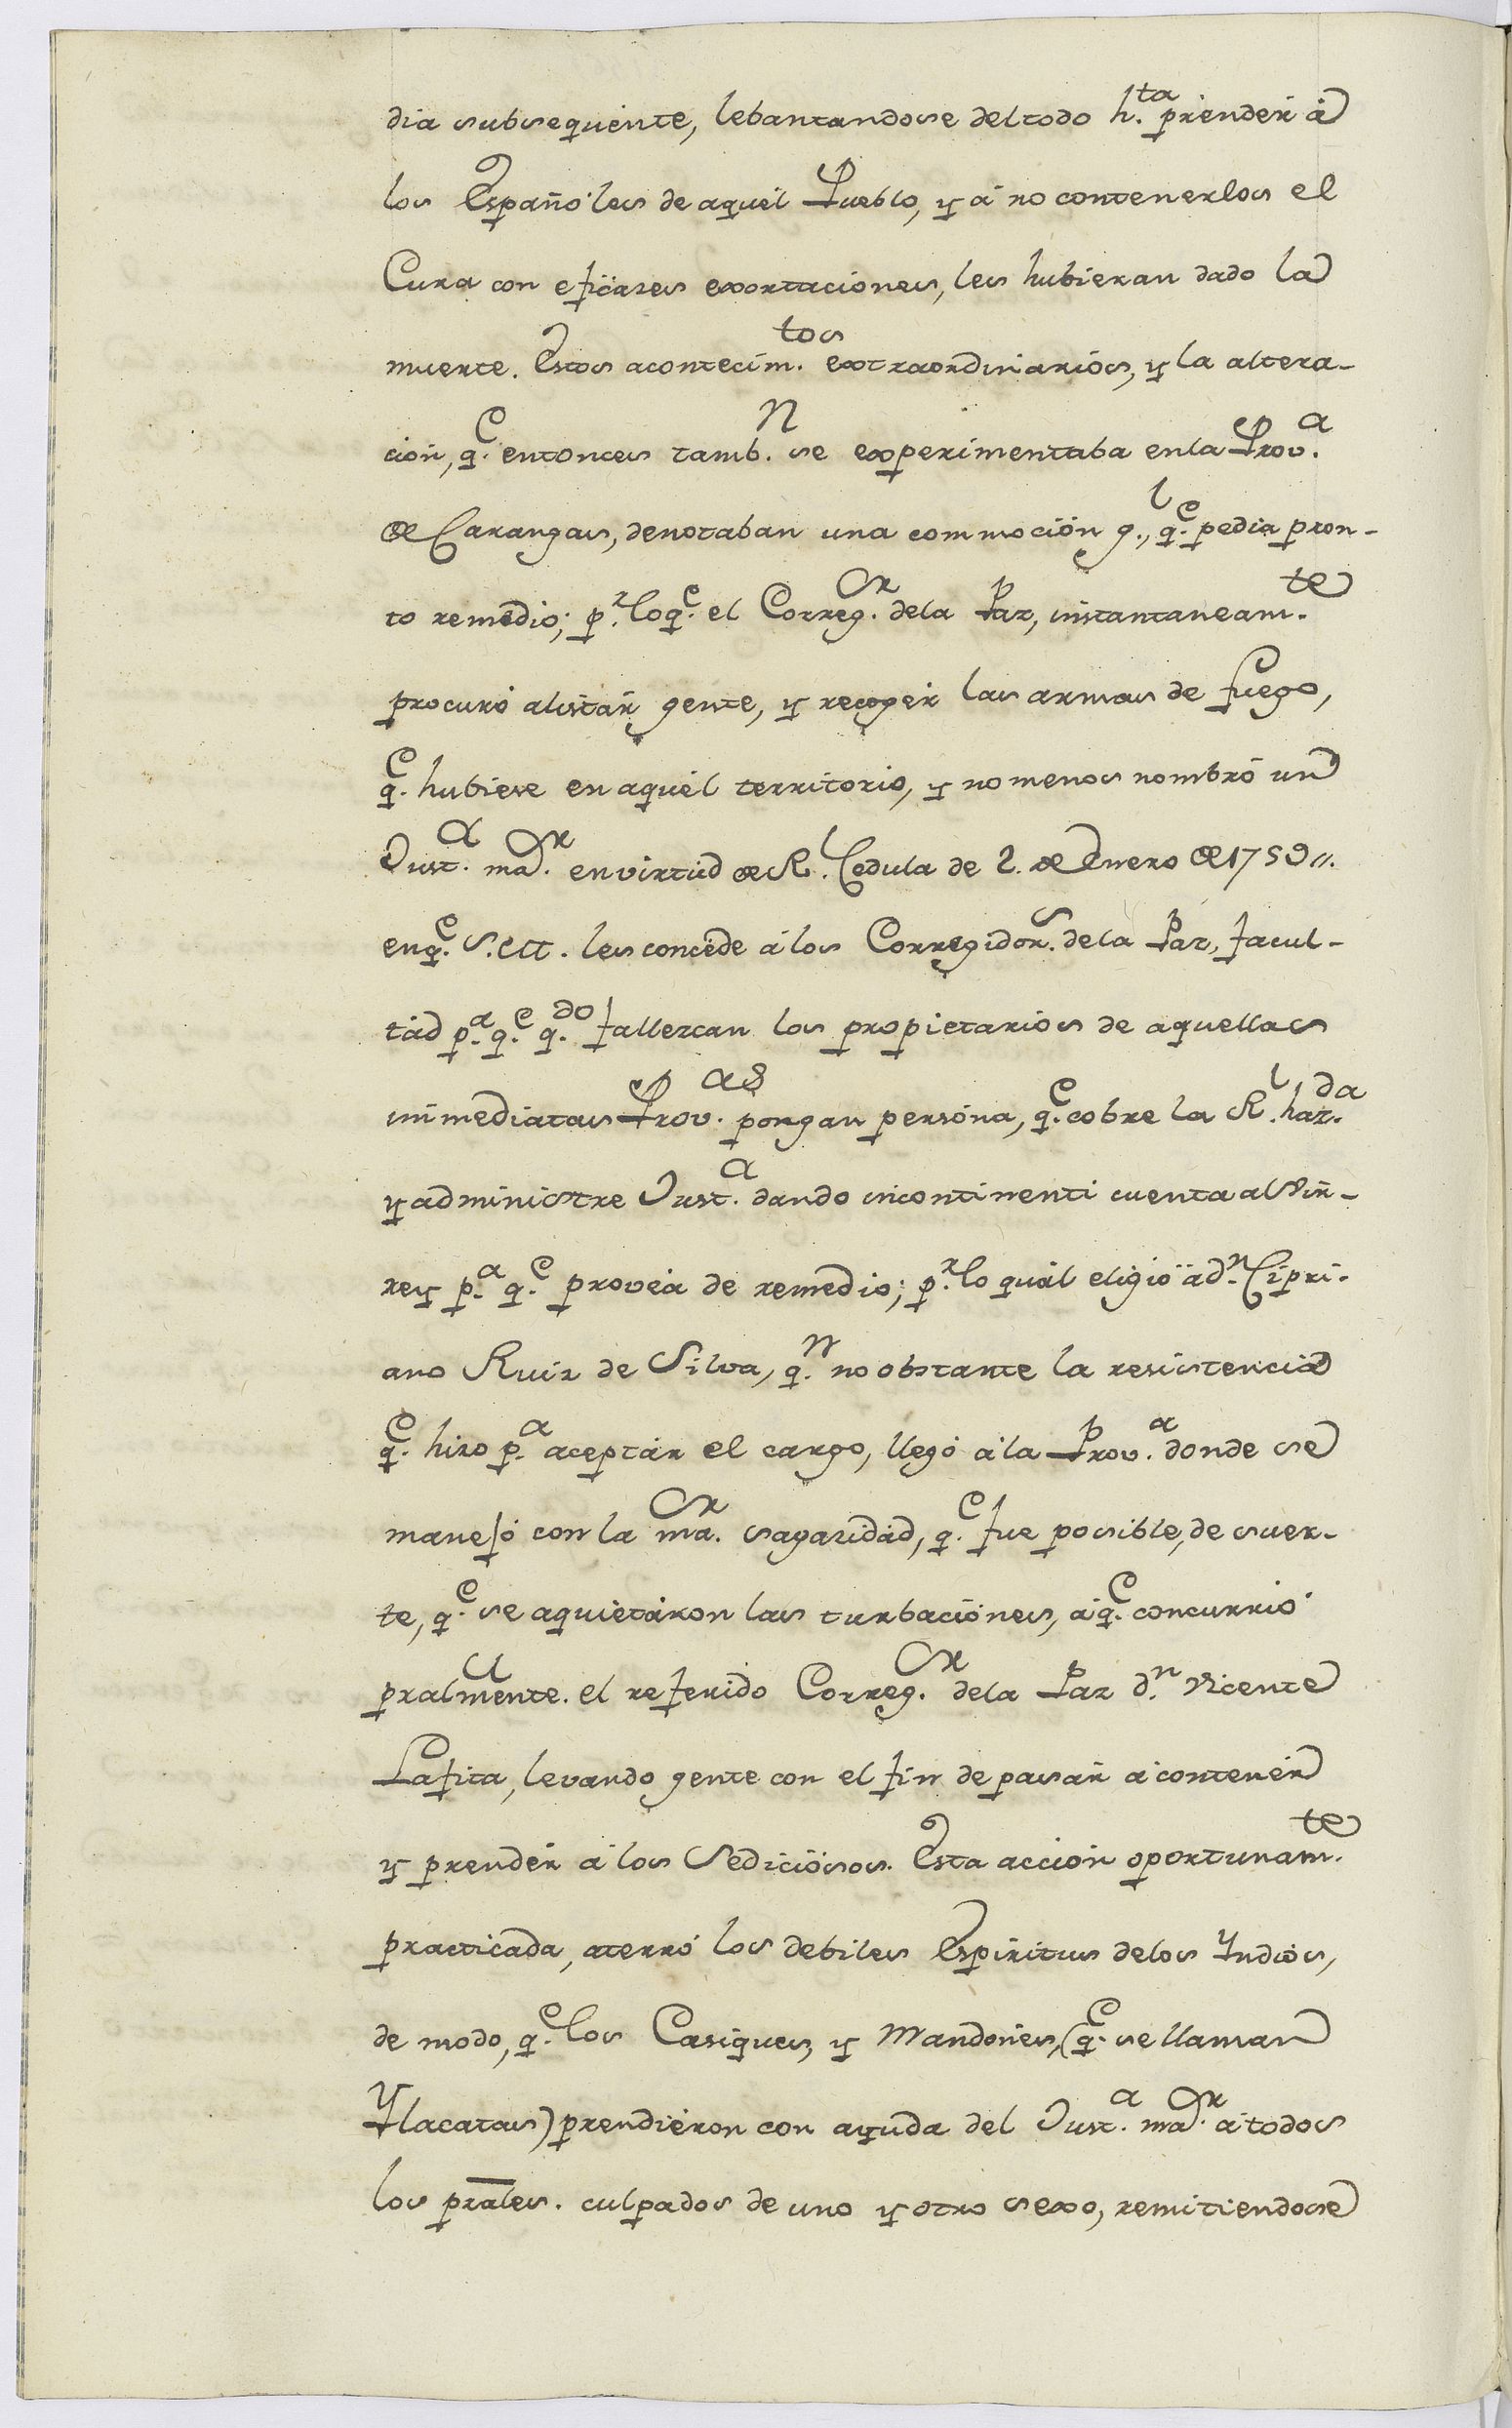 dia subsequente, lebantandose del todo h.ta prender á
los Españoles de aquel Pueblo, y á no contenerlos el
Cura con eficazes exortaciones, les hubieran dado la
muerte. Estos acontecim.tos extraordinarios, y la altera-
cion, q.e entonces tamb.n se experimentaba en la Prov.a
de Carangas, denotaban una commoción g.l, q.e pedia pron-
to remedio; p.r lo q.e el Correg.or de la Paz, instantaneam.te
procuró alistar gente, y recoger las armas de fuego,
q.e hubiese en aquel territorio, y no menos nombró un
Just.a ma.or en virtud de R.l Cedula de 2. de Enero de 1759,,.
en q.e S.M. les concede á los Corregidor.s de la Paz, facul-
tad p.a q.e q.do fallezcan los propietarios de aquellas
inmediatas Prov.as pongan persona, q.e cobre la R.l haz.da
y administre Just.a dando incontinenti cuenta al Vir-
rey p.a q.e provea de remedio; p.r lo qual eligio à d.n Cipri-
ano Ruiz de Silva, q.n no obstante la resistencia
q.e hizo p.a aceptar el cargo, llegó á la Prov.a donde se
manejó con la ma.or sagazidad, q.e fue posible, de suer-
te, q.e se aquietaron las turbaciones, á q.e concurrió
pralmente. el referido Correg.or de la Paz d.n Vicente
Lafita, levando gente con el fin de pasar á contener
y prender á los Sediciosos. Esta accion oportunam.te
practicada, aterró los debiles Espiritus de los Yndios,
de modo, q.e los Casiques, y Mandones, (q.e se llaman
Ylacatas) prendieron con ayuda del Just.a ma.or á todos
los prales. culpados de uno y otro sexo, remitiendose